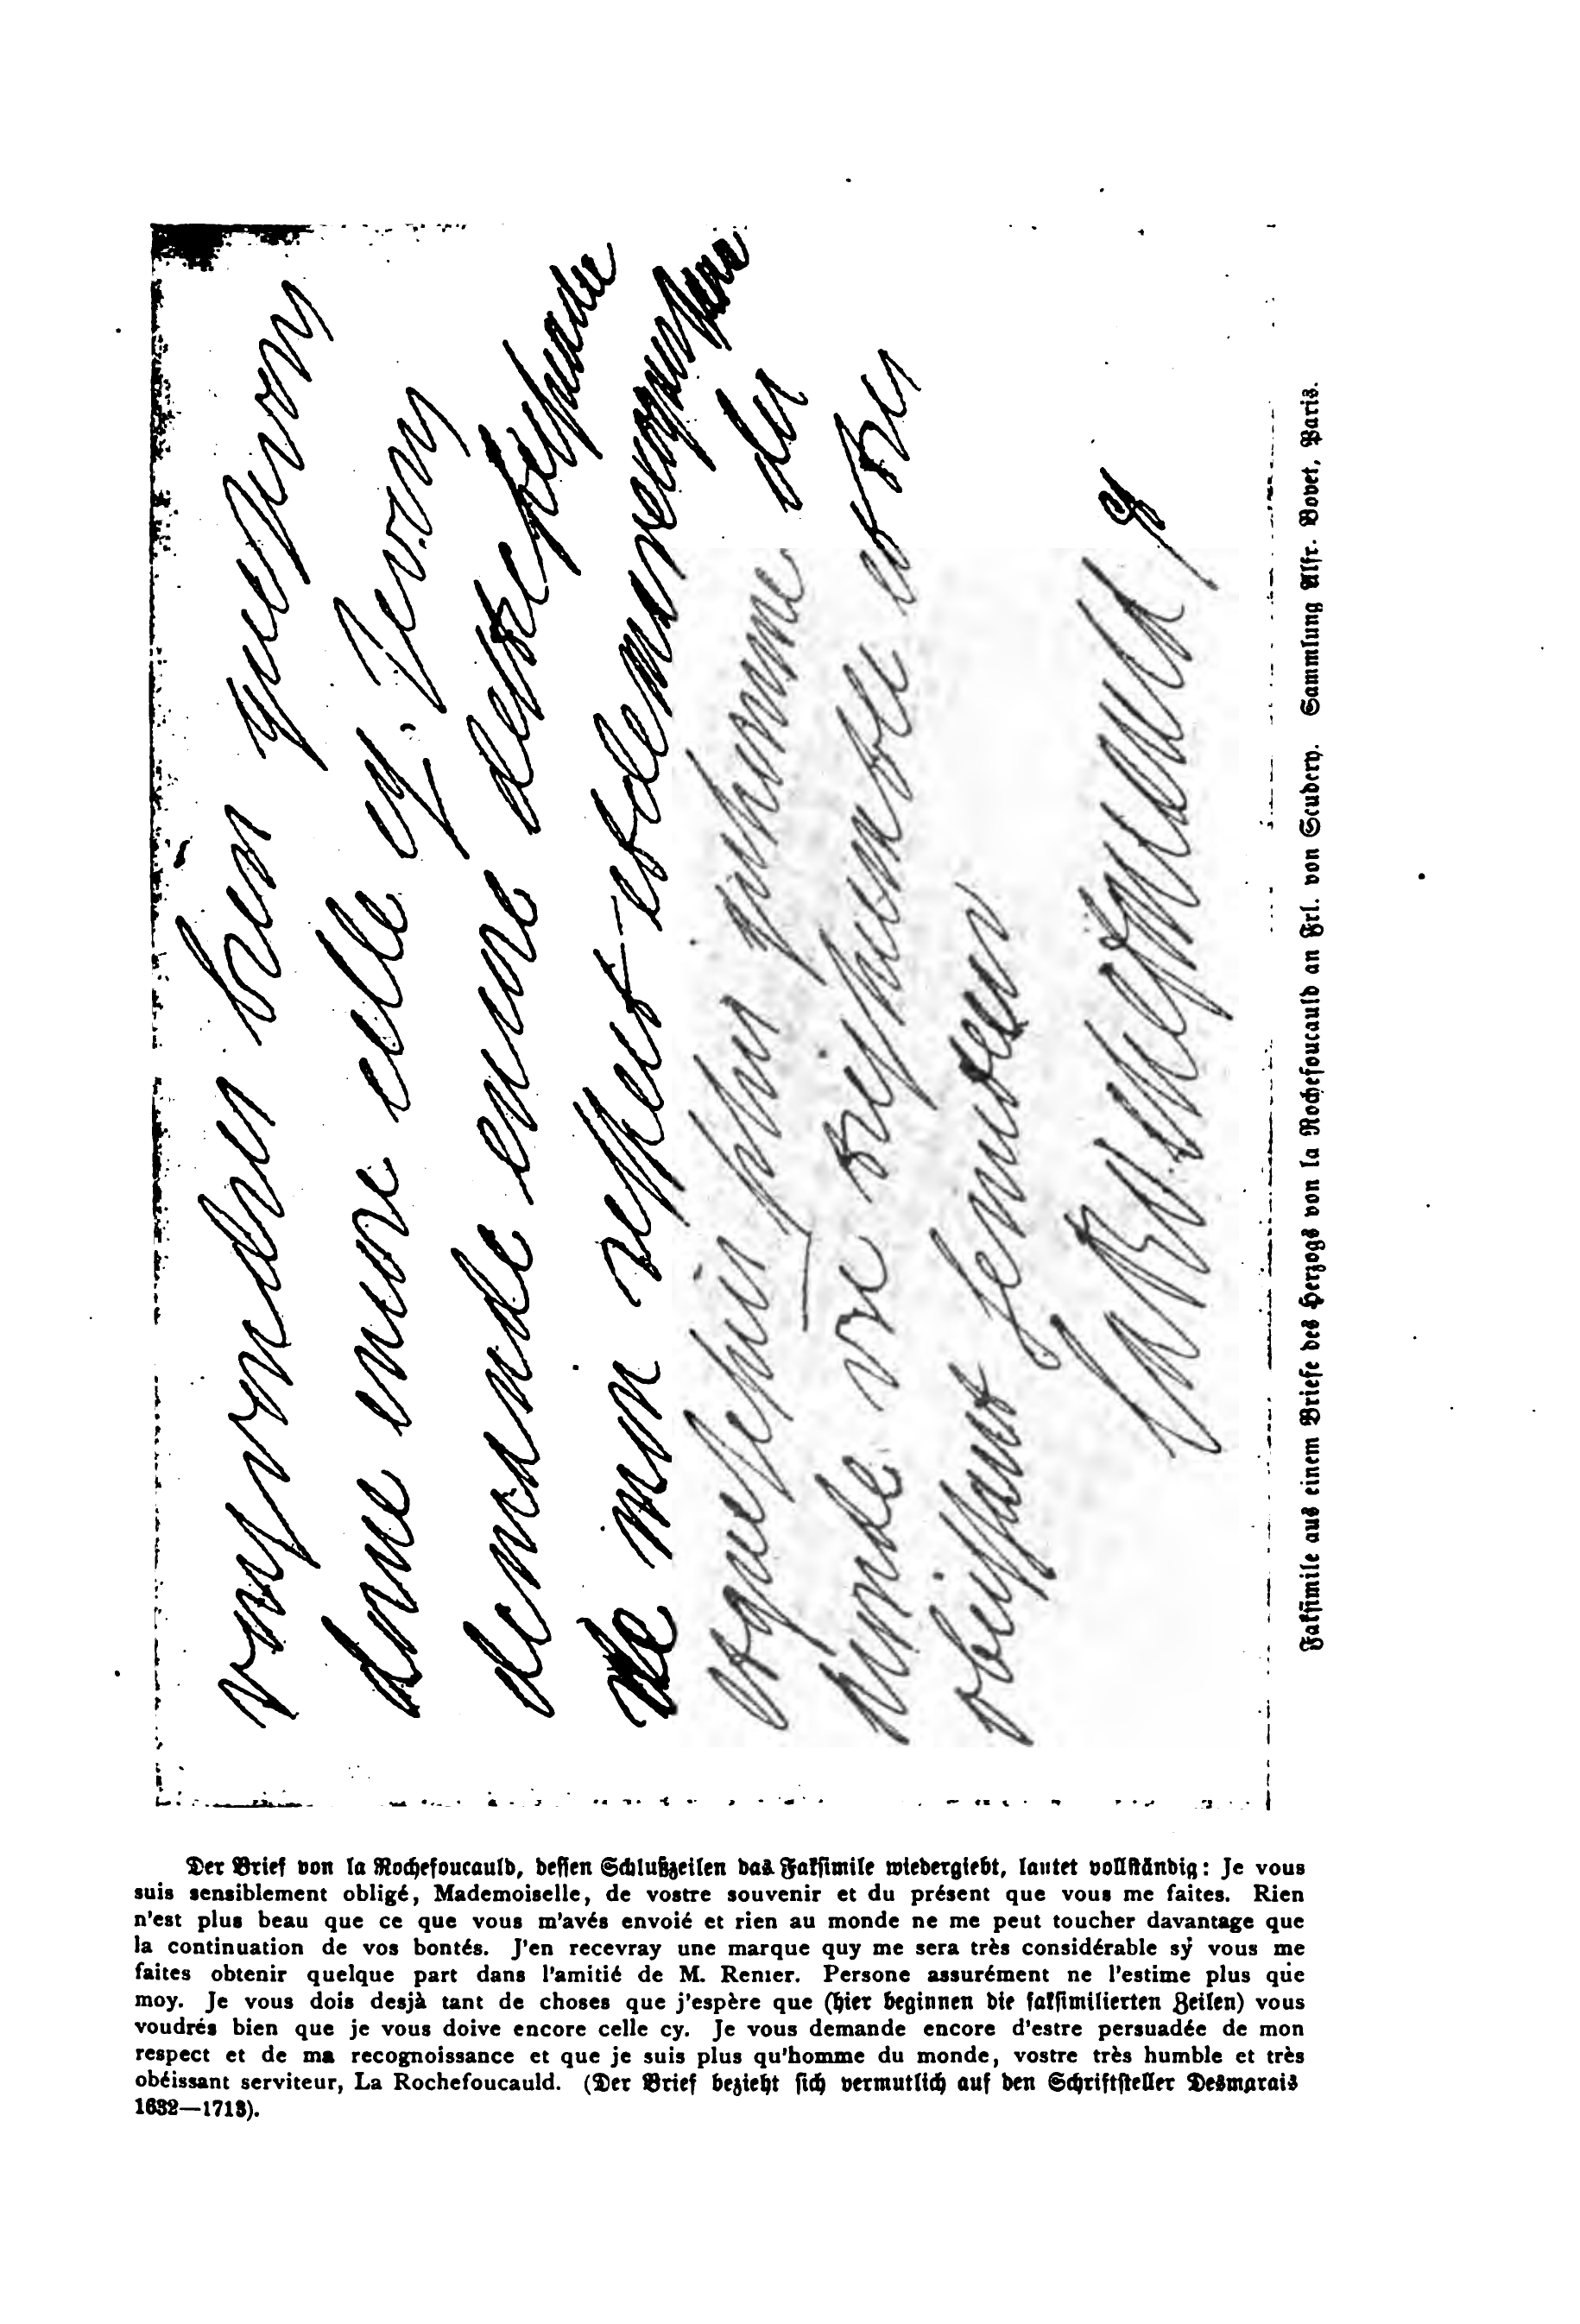 vous voudres bien que je vous
doive encore celle cy. Je vous
demande encore destre persuadee
de mon respect et de ma recognoissance
et que je suis plus quhomme du
monde vre tres humble et tres
obeissant serviteur
La Rochefoucauld
Faksimile aus einem Briefe des Herzogs von la Rochefoucauld an Frl. von Scudery. Sammlung Alfr. Bovet, Paris.
Der Brief von la Rochefoucauld, dessen Schlußzeilen das Faksimile wiedergiebt, lautet vollständig: Je vous
suis sensiblement obligé, Mademoiselle, de vostre souvenir et du présent que vous me faites. Rien
n'est plus beau que ce que vous m'avés envoié et rien au monde ne me peut toucher davantage que
la continuation de vos bontés. J'en recevray une marque quy me sera très considérable sy vous me
faites obtenir quelque part dans l'amitié de M. Renier. Persone assurément ne l'estime plus que
moy. Je vous dois desjà tant de choses que j'espère que (hier beginnen die faksimilierten Zeilen) vous
voudrés bien que je vous doive encore celle cy. Je vous demande encore d'estre persuadée de mon
respect et de ma recognoissance et que je suis plus qu'homme du monde, vostre très humble et très
obéissant serviteur, La Rochefoucauld. (Der Brief bezieht sich vermutlich auf den Schriftsteller Desmarais
1632—1713).